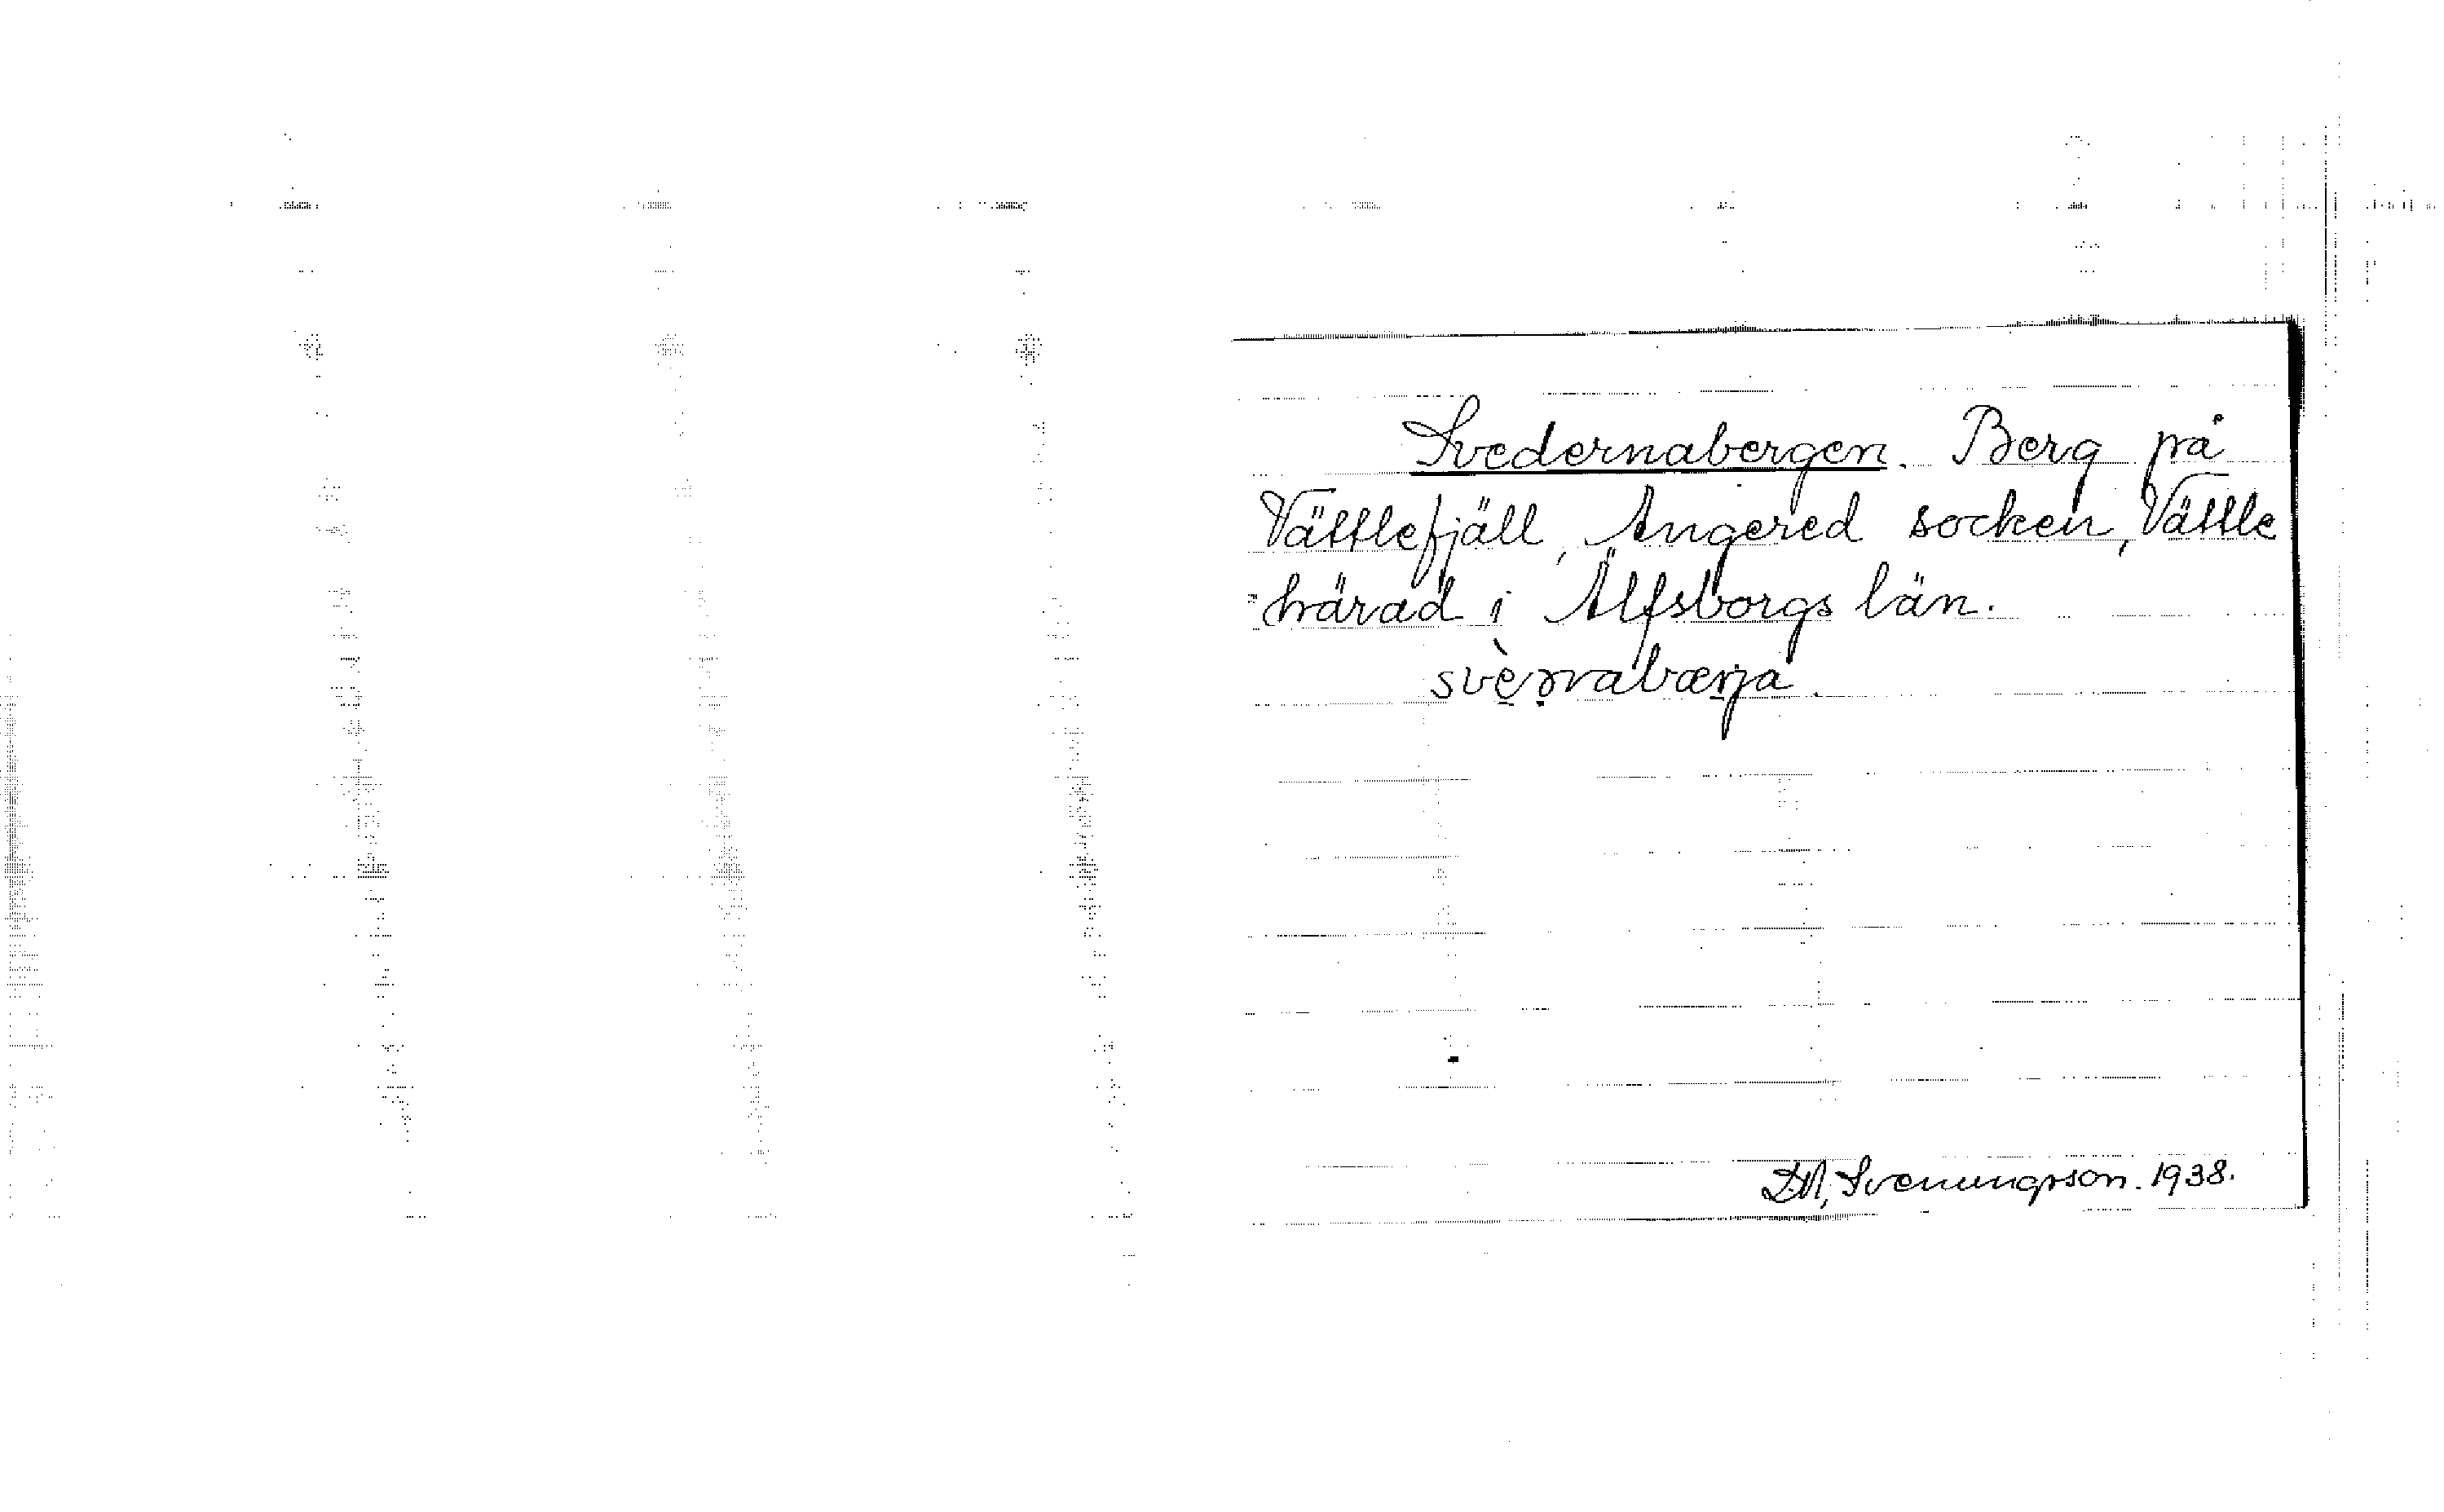 Svedernabergen. Berg på
Vättlefjäll, Angered socken, Vättle
härad i Älfsborgs län.
Svenungsson. 1938.